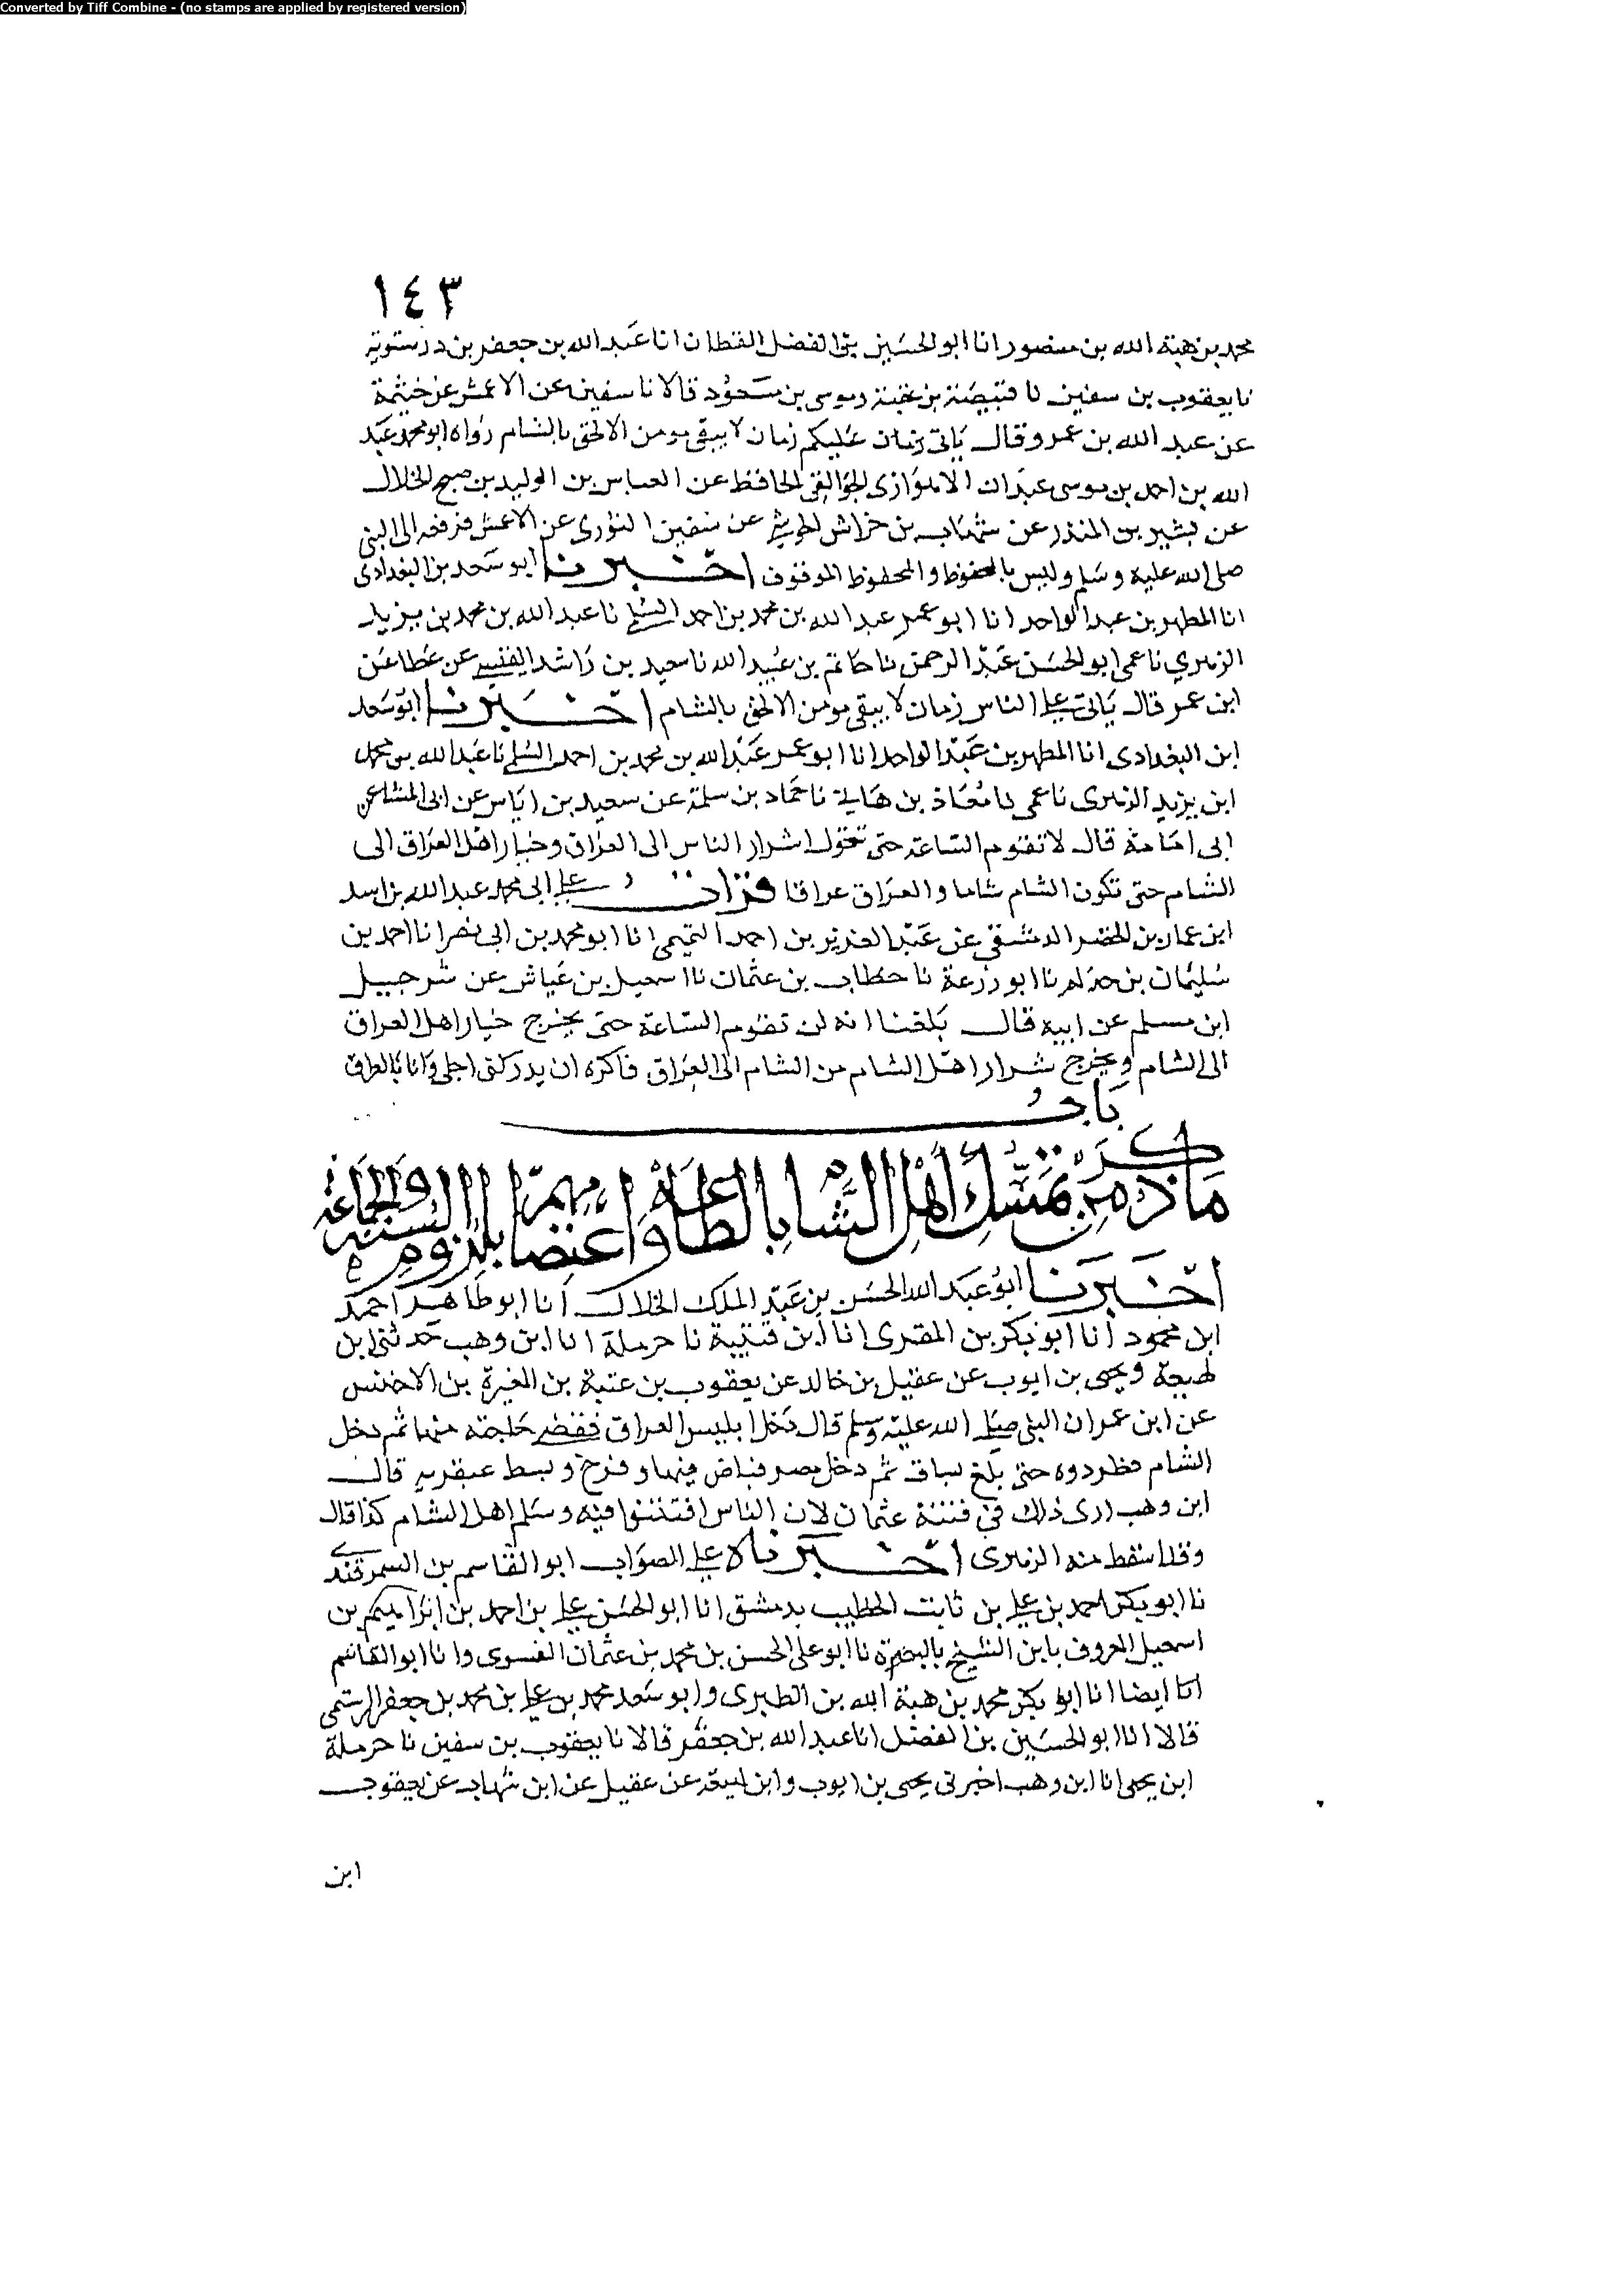 Converted by Tiff Combine - (no stamps are applied by registered version)
١٤٣
محمد بن هبة الله بن منصور انا ابو الحسين بن الفضل القطان انا عبد الله بن جعفر بن درستويه
نا يعقوب بن سفين نا قبيصة بن عقبة وموسى بن مسعود قالا نا سفين عن الاعمش عن خيثمة
عن عبد الله بن عمرو قال ياتي زمان عليكم زمان لا يبقى مومن الا لحق بالشام رواه ابو محمد عبد
الله بن احمد بن موسى عبدان الاهوازى الجواليقى الحافظ عن العباس بن الوليد بن صبح الخلال
عن بشير بن المنذر عن شهاب بن خراش الحوشبي عن سفين الثورى عن الاعمش فرفعه الى النبي
صلى الله عليه وسلم وليس بالمحفوظ والمحفوظ الموقوف اخبرنا ابو سعد بن البغدادى
انا المطهر بن عبد الواحد انا ابو عمر عبد الله بن محمد بن احمد السلمي نا عبد الله بن محمد بن يزيد
الزهري نا عمى ابو الحسن عبد الرحمن نا حاتم بن عبيد الله نا سعيد بن راشد عن عطا عن
ابن عمر قال ياتى على الناس زمان لا يبقى مومن الا لحق بالشام اخبرنا ابو سعد
ابن البغدادى انا المطهر بن عبد الواحد انا ابو عمر عبد الله بن محمد بن احمد السلمي نا عبد الله بن محمد
ابن يزيد الزهرى نا عمى نا معاذ بن هانى نا حماد بن سلمة عن سعيد بن اياس عن ابى المشا عن
ابى امامة قال لا تقوم الساعة حتى تتحول اشرار الناس الى العراق وخيار اهل العراق الى
الشام حتى تكون الشام شاما والعراق عراقا قرات على ابى محمد عبد الله بن اسد
ابن عمار بن الخضر الدمشقى عن عبد العزيز بن احمد التميمى انا ابو محمد بن ابى نصر انا احمد بن
سليمان بن حذلم نا ابو زرعة نا خطاب بن عثمان نا اسمعيل بن عياش عن شرحبيل
ابن مسلم عن ابيه قال بلغنا انه لن تقوم الساعة حتى يخرج خيار اهل العراق
الى الشام ويخرج شرار اهل الشام من الشام الى العراق فاكره ان يدركنى اجلى وانا بالعراق
باب
ما ذكر من تمسك اهل الشام بالطاعة واعتصامهم بلزوم السنة والجماعة
اخبرنا ابو عبد الله الحسن بن عبد الملك الخلال انا ابو طاهر احمد
ابن محمود انا ابو بكر بن المقرى انا ابن قتيبة نا حرملة انا ابن وهب حدثنى ابن
لهيعة ويحيى بن ايوب عن عقيل بن خالد عن يعقوب بن عتبة بن المغيرة بن الاخنس
عن ابن عمر ان النبى صلى الله عليه وسلم قال دخل ابليس العراق فقضى حاجته منها ثم دخل
الشام فطردوه حتى بلغ بساق ثم دخل مصر فباض فيها وفرخ وبسط عبقريه قال
ابن وهب ارى ذلك في فتنة عثمان لان الناس افتتنوا فيه وسلم اهل الشام كذا قال
وقد اسقط منه الزهرى اخبرناه على الصواب ابو القاسم بن السمرقندى
نا ابو بكر احمد بن على بن ثابت الخطيب بدمشق انا ابو الحسن على بن احمد بن ابراهيم بن
اسمعيل المعروف بابن الشيخ بالبصرة نا ابو على الحسن بن محمد بن عثمان الفسوى وانا ابو القاسم
انا ايضا انا ابو بكر محمد بن هبة الله بن الطبرى وابو سعد محمد بن على بن محمد بن جعفر الرستمى
قالا انا ابو الحسين بن الفضل انا عبد الله بن جعفر قالا نا يعقوب بن سفين نا حرملة
ابن يحيى انا ابن وهب اخبرنى يحيى بن ايوب وابن لهيعه عن عقيل عن ابن شهاب عن يعقوب
ابن